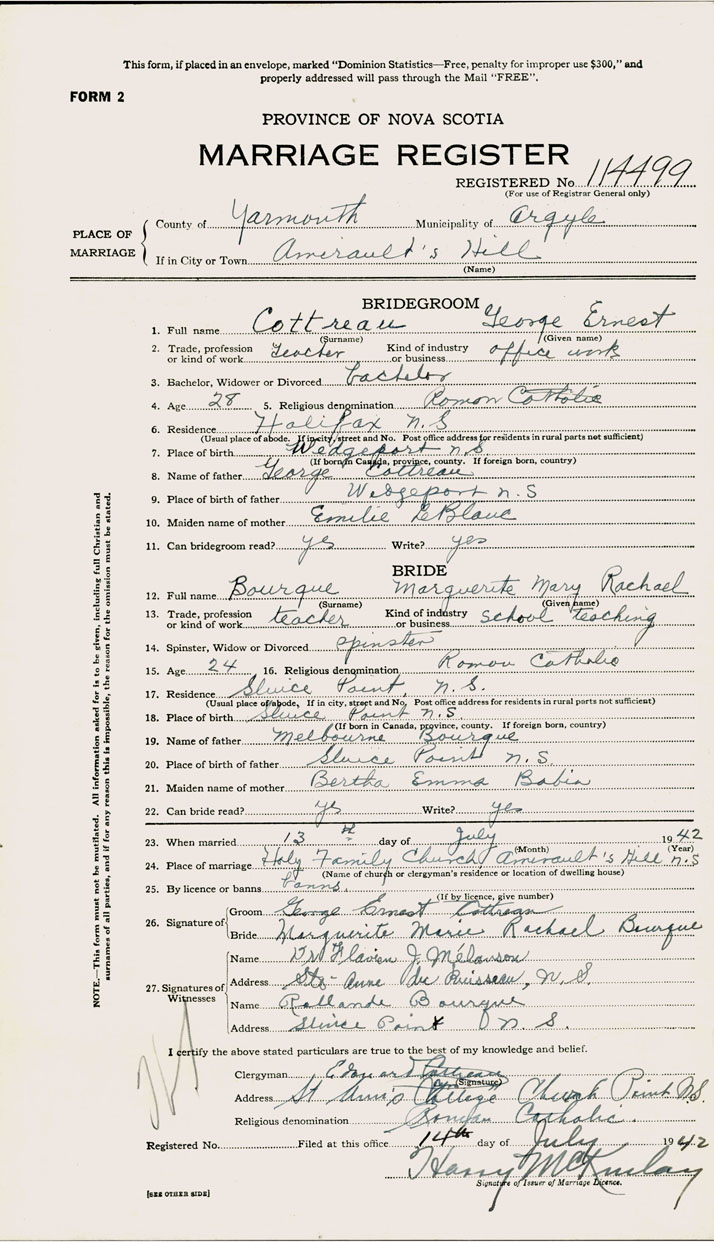 This form, if placed in an envelope, marked "Dominion Statistics—Free, penalty for improper use $300," and
properly addressed will pass through the Mail "FREE".
FORM 2
PROVINCE OF NOVA SCOTIA
MARRIAGE REGISTER
REGISTERED No. 114499
(For use of Registrar General only)
PLACE OF MARRIAGE
County of Yarmouth Municipality of Argyle
If in City or Town Amirault's Hill
(Name)
BRIDEGROOM
1. Full name Cottreau George Ernest
(Surname) (Given name)
2. Trade, profession or kind of work teacher Kind of industry or business office work
3. Bachelor, Widower or Divorced bachelor
4. Age 28 5. Religious denomination Roman Catholic
6. Residence Halifax N.S
(Usual place of abode. If in city, street and No. Post office address for residents in rural parts not sufficient)
7. Place of birth Wedgeport N.S.
(If born in Canada, province, county. If foreign born, country)
8. Name of father George Cottreau
9. Place of birth of father Wedgeport N.S
10. Maiden name of mother Emilie LeBlanc
11. Can bridegroom read? yes Write? yes
BRIDE
12. Full name Bourque Marguerite Mary Rachael
(Surname) (Given name)
13. Trade, profession or kind of work teacher Kind of industry or business school teaching
14. Spinster, Widow or Divorced spinster
15. Age 24 16. Religious denomination Roman Catholic
17. Residence Sluice Point, N.S.
(Usual place of abode, If in city, street and No. Post office address for residents in rural parts not sufficient)
18. Place of birth Sluice Point N.S.
(If born in Canada, province, county. If foreign born, country)
19. Name of father Melbourne Bourque
20. Place of birth of father Sluice Point N.S.
21. Maiden name of mother Bertha Emma Babin
22. Can bride read? yes Write? yes
23. When married 13 th day of July 1942
(Month) (Year)
24. Place of marriage Holy Family Church, Amirault's Hill N.S
(Name of church or clergyman's residence or location of dwelling house)
25. By licence or banns banns
(If by licence, give number)
26. Signature of
Groom George Ernest Cottreau
Bride Marguerite Marie Rachael Bourque
27. Signatures of Witnesses
Name Dr Flavien J. Mélanson
Address Ste-Anne du Ruisseau, N.S.
Name Rollande Bourque
Address Sluice Point N.S.
I certify the above stated particulars are true to the best of my knowledge and belief.
Clergyman Edouard Cottreau
(Signature)
Address St Ann's College Church Point N.S.
Religious denomination Roman Catholic.
Registered No. Filed at this office 14th day of July 1942
Harry McKinlay
Signature of Issuer of Marriage Licence.
[SEE OTHER SIDE]
NOTE.—This form must not be mutilated. All information asked for is to be given, including full Christian and
surnames of all parties, and if for any reason this is impossible, the reason for the omission must be stated.